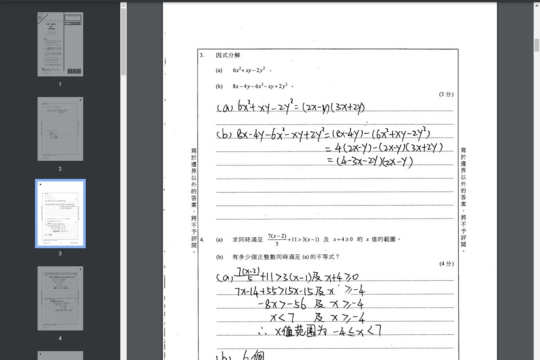 3. 因式分解
(a) 6x²+xy-2y²。
(b) 8x-4y-6x²-xy+2y²。
(3 分)
(a) 6x²+xy-2y²=(2x-y)(3x+2y)
(b) 8x-4y-6x²-xy+2y²=(8x-4y)-(6x²+xy-2y²)
=4(2x-y)-(2x-y)(3x+2y)
=(4-3x-2y)(2x-y)
寫於邊界以外的答案，將不予評閱。
寫於邊界以外的答案，將不予評閱。
4. (a) 求同時滿足 7(x-2)/5+11>3(x-1) 及 x+4≥0 的 x 值的範圍。
(b) 有多少個正整數同時滿足 (a) 的不等式？
(4 分)
(a) 7(x-2)/5+11>3(x-1)及x+4≥0
7x-14+55>15x-15及x≥-4
-8x>-56 及 x≥-4
x<7 及 x≥-4
∴ x值范围为 -4≤x<7
(b) 6個
1
2
3
4